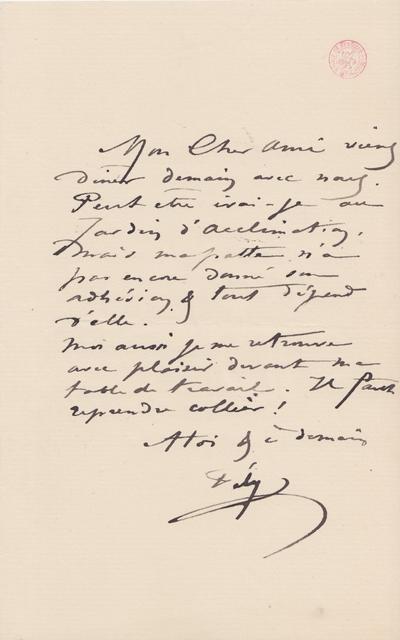 Mon Cher ami viens
diner demain avec nous.
Peut etre irai-je au
Jardin d'acclimatation,
mais ma patte n'a
pas encore donné son
adhésion & tout dépend
d'elle.
Moi aussi je me retrouve
avec plaisir devant ma
table de travail. Il faut
reprendre collier !
A toi & à demain